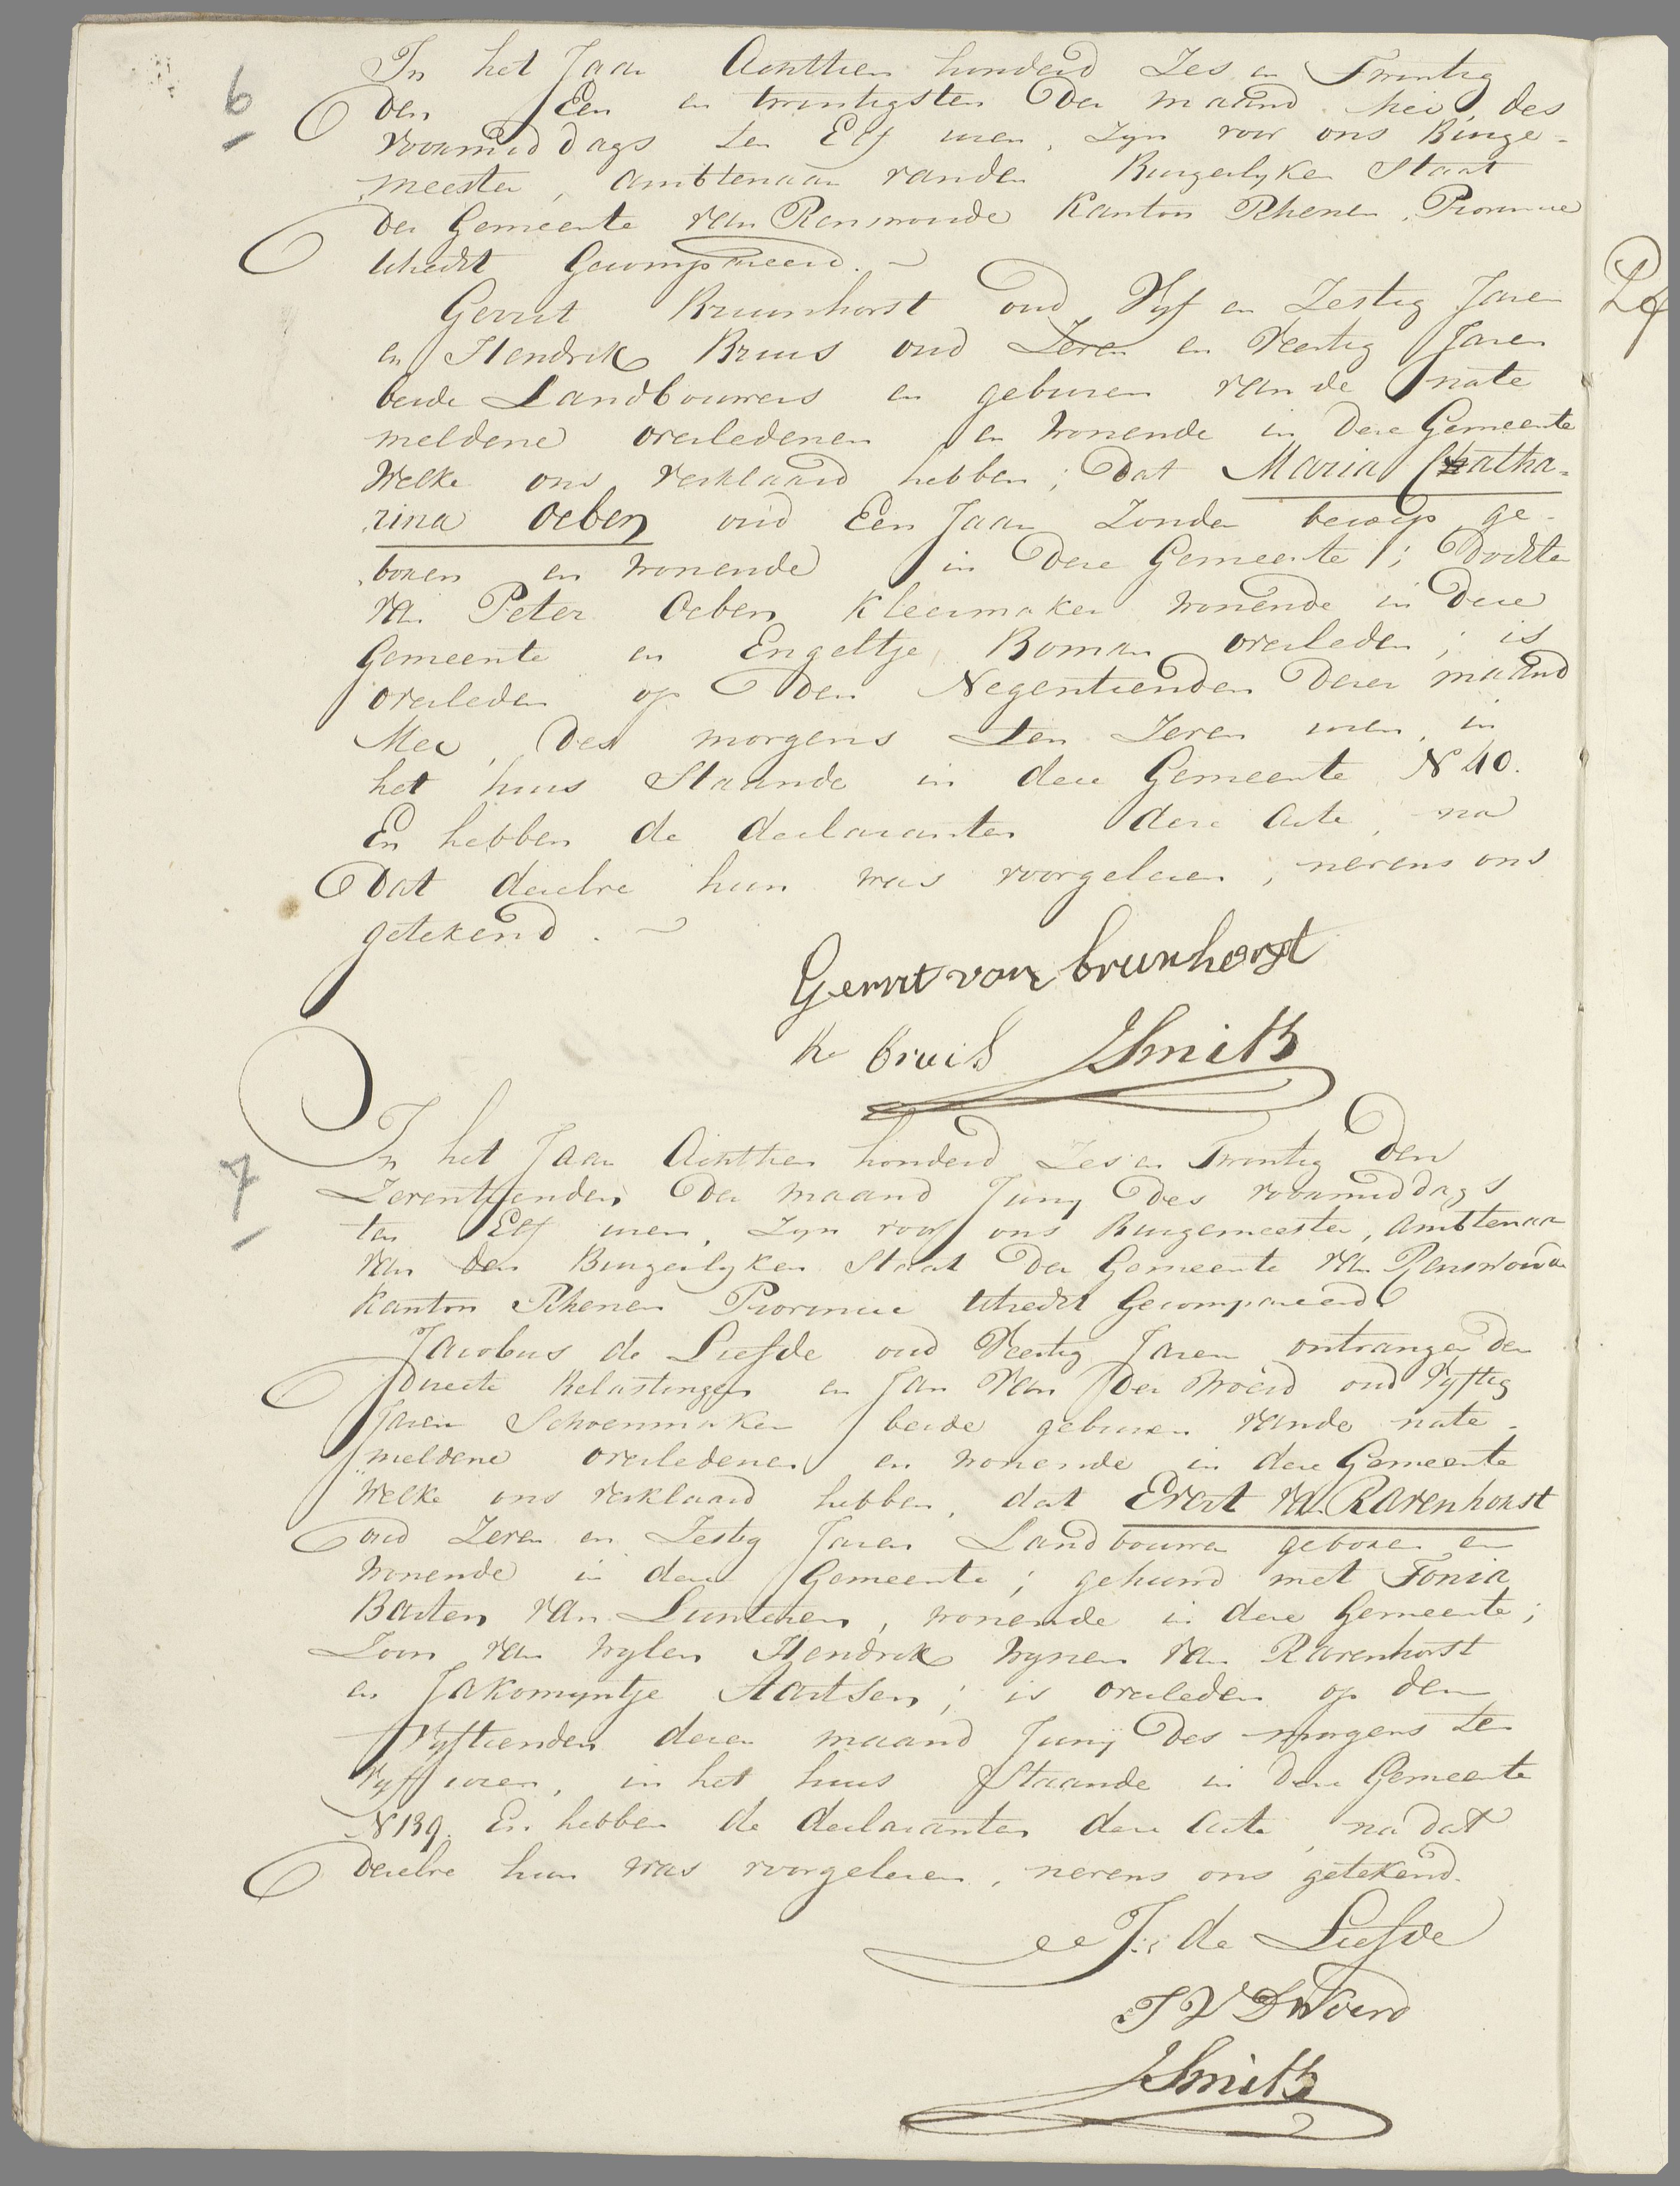 6
In het Jaar Achttien honderd Zes en Twintig
den Een en twintigsten der maand Mei, des
voormiddags ten Elf uren, zyn voor ons Burge-
meester, ambtenaar vanden Burgerlyken Staat
der Gemeente van Renswoude Kanton Rhenen, Provincie
Utrecht Gecompareerd.
Gerrit Bruinhorst oud Vyf en Zestig Jaren
en Hendrik Bruis oud Zeven en Veertig Jaren
beide Landbouwers en geburen van de nate
meldene overledenen en wonende in deze Gemeente
Welke ons verklaard hebben; dat Maria Catha-
rina Oeben oud Een Jaar Zonder beroep ge-
boren en wonende in deze Gemeente; Dochter
van Peter Oeben Kleermaker wonende in deze
Gemeente en Engeltje Boman overleden; is
overleden op den Negentienden dezer maand
Mei, des morgens ten Zeven uren, in
het huis Staande in deze Gemeente N 40.
En hebben de declaranten deze acte, na
dat dezelve hun was voorgelezen, nevens ons
getekend.
Gerrit van brunhorst
h bruis JSmith
7
In het Jaar Achttien honderd Zes en Twintig den
Zeventienden der maand Juny des voormiddags
ten Elf uren, zyn voor ons Burgemeester, ambtenaar
van den Burgerlyken Staat der Gemeente van Renswoude
Kanton Rhenen Provincie Utrecht Gecompareerd
Jacobus de Liefde oud Veertig Jaren ontvanger der
directe Belastingen en Jan van der Woerd oud Vyftig
Jaren Schoenmaker beide geburen vande nate-
meldene overledenen en wonende in deze Gemeente
Welke ons verklaard hebben, dat Evert van Ravenhorst
oud Zeven en Zestig Jaren Landbouwer geboren en
wonende in deze Gemeente; gehuwd met Tonia
Barten van Lunteren, wonende in deze Gemeente;
Zoon van Wylen Hendrik Wynen van Ravenhorst
en Jakomyntje Aartsen; is overleden op den
Vyftienden dezer maand Juny des morgens ten
Vyff uren, in het huis Staande in deze Gemeente
N 139. En hebben de declaranten deze acte, na dat
dezelve hun was voorgelezen, nevens ons getekend.
J: de Liefde
J V D Woerd
JSmith